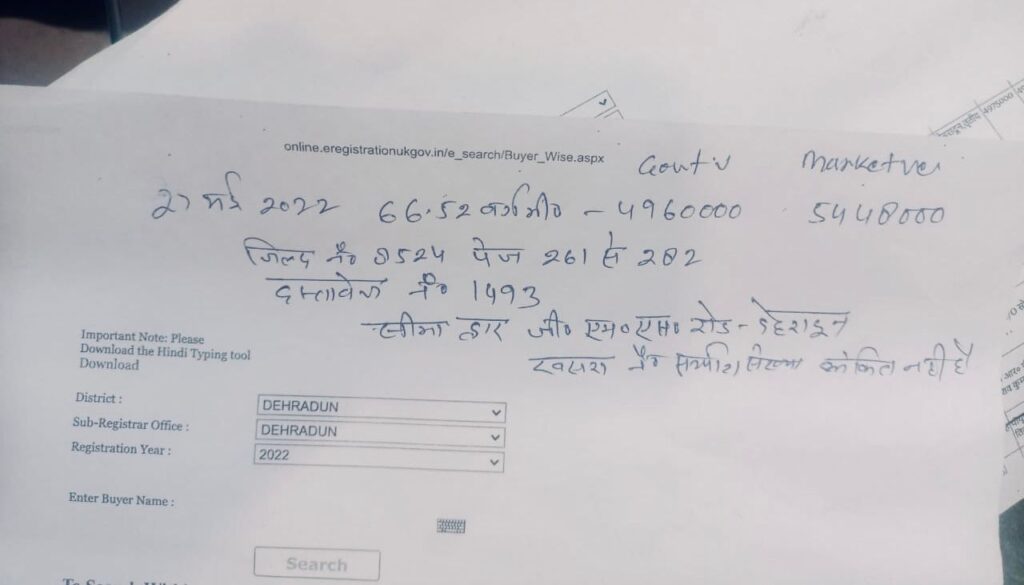 online.eregistrationukgov.in/e_search/Buyer_Wise.aspx
Govt v Marketver
27 मई 2022 66.52 वर्ग मी० - 4960000 5448000
जिल्द नं० 8524 पेज 261 से 282
दस्तावेज नं० 1493
सीमा द्वार जी० एम० एस० रोड - देहरादून
खसरा नं० सम्पत्ति संख्या अंकित नही है
Important Note: Please
Download the Hindi Typing tool
Download
District : DEHRADUN
Sub-Registrar Office : DEHRADUN
Registration Year : 2022
Enter Buyer Name :
Search
4975000